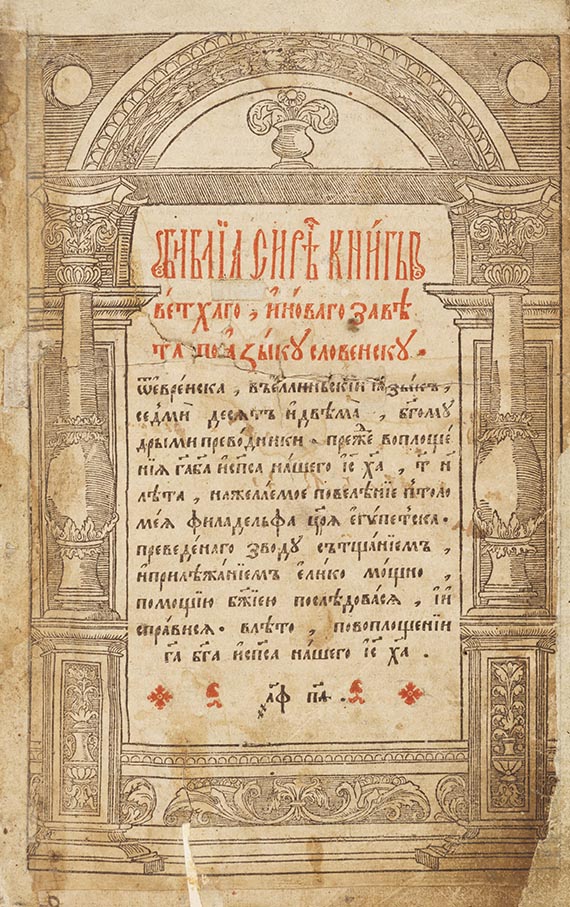 БИБЛІА СИРѢ КНИГЫ
ВЕТХАГО, И НОВАГО ЗАВѢ
ТА ПО ѦЗЫКУ СЛОВЕНСКУ.
ѿ еврейска, въ еллиньскїи ꙗзыкъ,
седмїи десѧтъ и двѣма, бг҃ому
дрыми преводники. преж̾е воплоще
нїѧ гда бга и҆ спса нашего іс҃ ха҃, т҃ и
лѣта, на желаемое повелѣнїе птоло
меѧ филаделфа цр҃ѧ египетска.
преведенаго зводу сътщанїемъ,
и прилѣжанїемъ елико мощно,
помощїю бж҃їею послѣдовасѧ, и и
справисѧ. влѣто, по воплощенїи
га҃ бг҃а и сп҃са нашего іс҃ ха҃.
҂аф па҃.